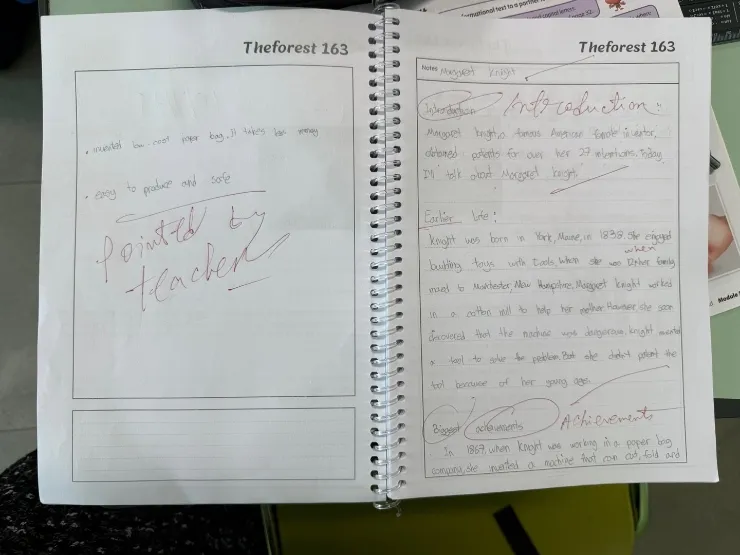 Theforest 163
• invented low-cost paper bag. It takes less money
• easy to produce and safe
Pointed by
teacher
Theforest 163
Notes Margaret Knight
Introduction Introduction:
Margaret knight, a famous American female inventor,
obtained patents for over her 27 intentions. Today,
I'll talk about Margaret knight.
Earlier life:
knight was born in York, Maine, in 1838. She enjoyed
building toys with tools. When she was 12, her family
when
moved to Manchester, New Hampshire. Margaret knight worked
in a cotton mill to help her mother. However she soon
discovered that the machine was dangerous. knight
a tool to solve problem. But she didn't patent the
tool because of her young age.
Biggest Achievements
In 1867, when knight was working in a paper bag
company, she invented a machine that can cut, fold and
formational text to a partner
Module